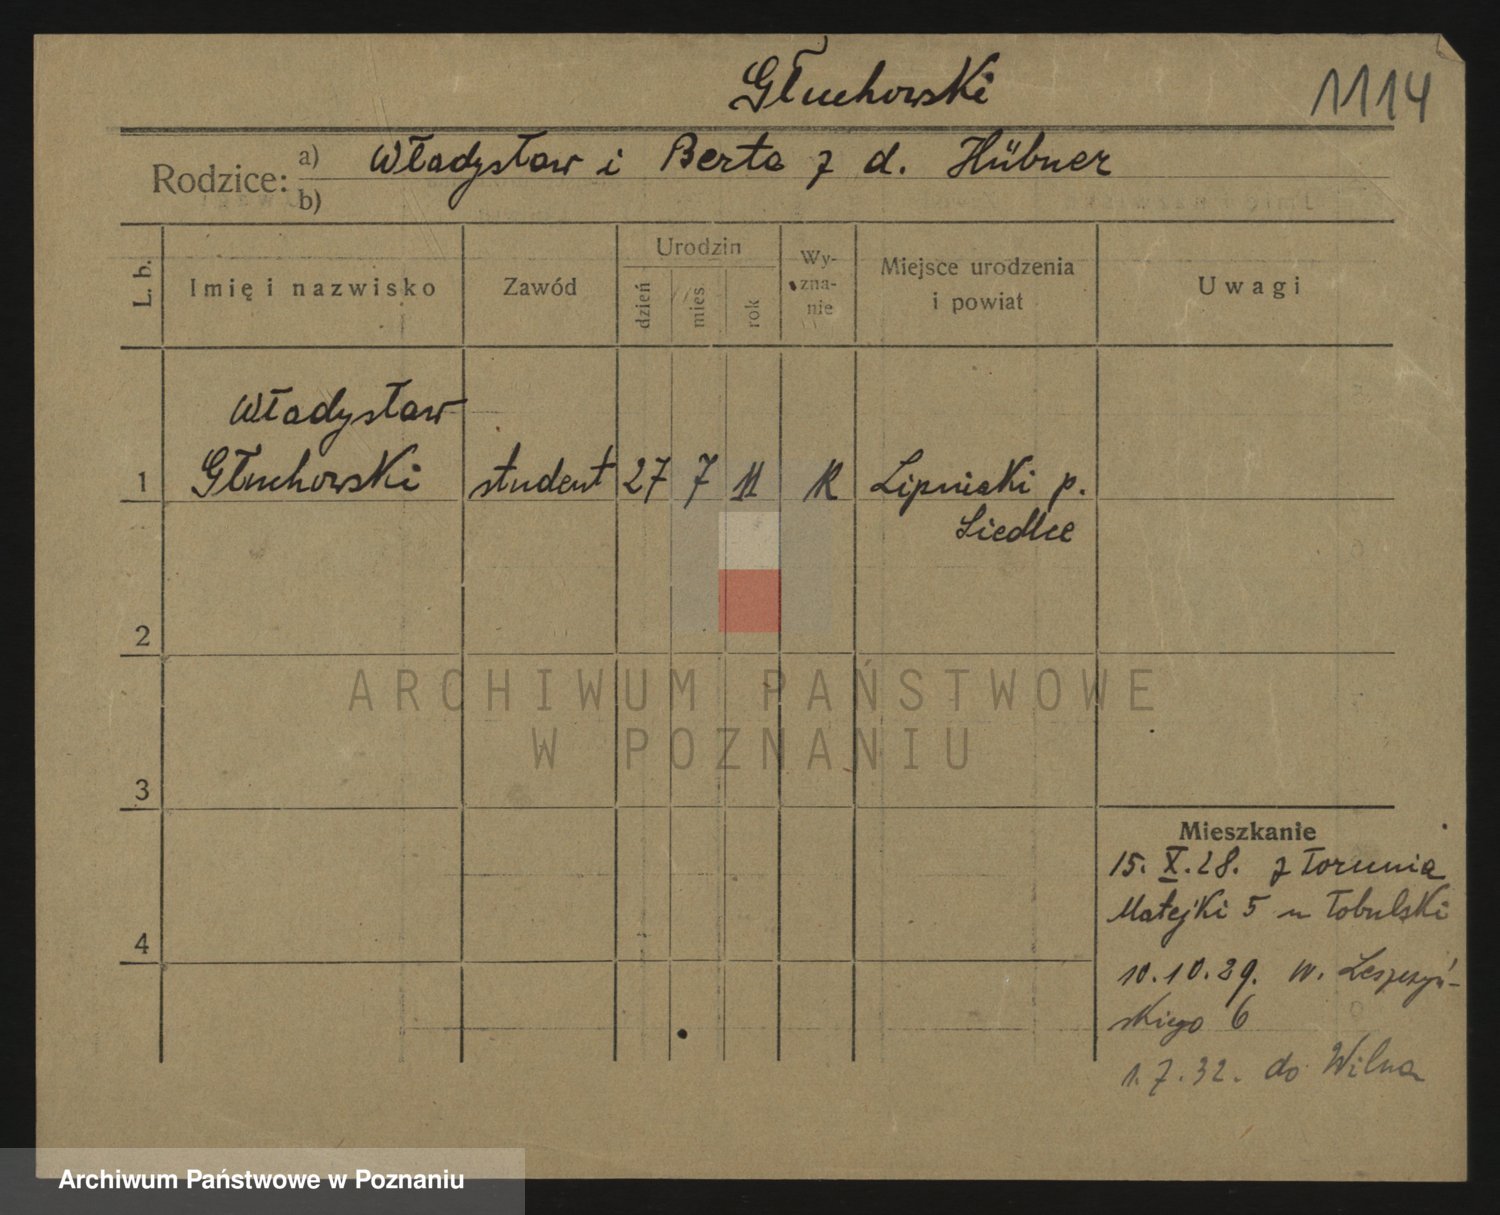 Głuchowski
1114
Rodzice: a) Władysław i Berta z d. Hübner
b)
L. b.
Imię i nazwisko
Zawód
Urodzin
dzień
mies
rok
Wy-
zna-
nie
Miejsce urodzenia
i powiat
Uwagi
Władysław
1 Głuchowski student 27 7 11 R Lipniaki p.
Siedlce
2
ARCHIWUM PAŃSTWOWE
W POZNANIU
3
Mieszkanie
15. X. 28. z Torunia
Matejki 5 u Tobulski
4
10.10.29. W. Leszczyń-
skiego 6
1.7.32. do Wilna
Archiwum Państwowe w Poznaniu